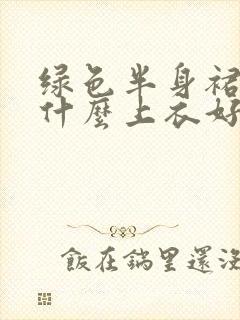 绿色半身裙
什麼上衣好
飯在鍋里還沒